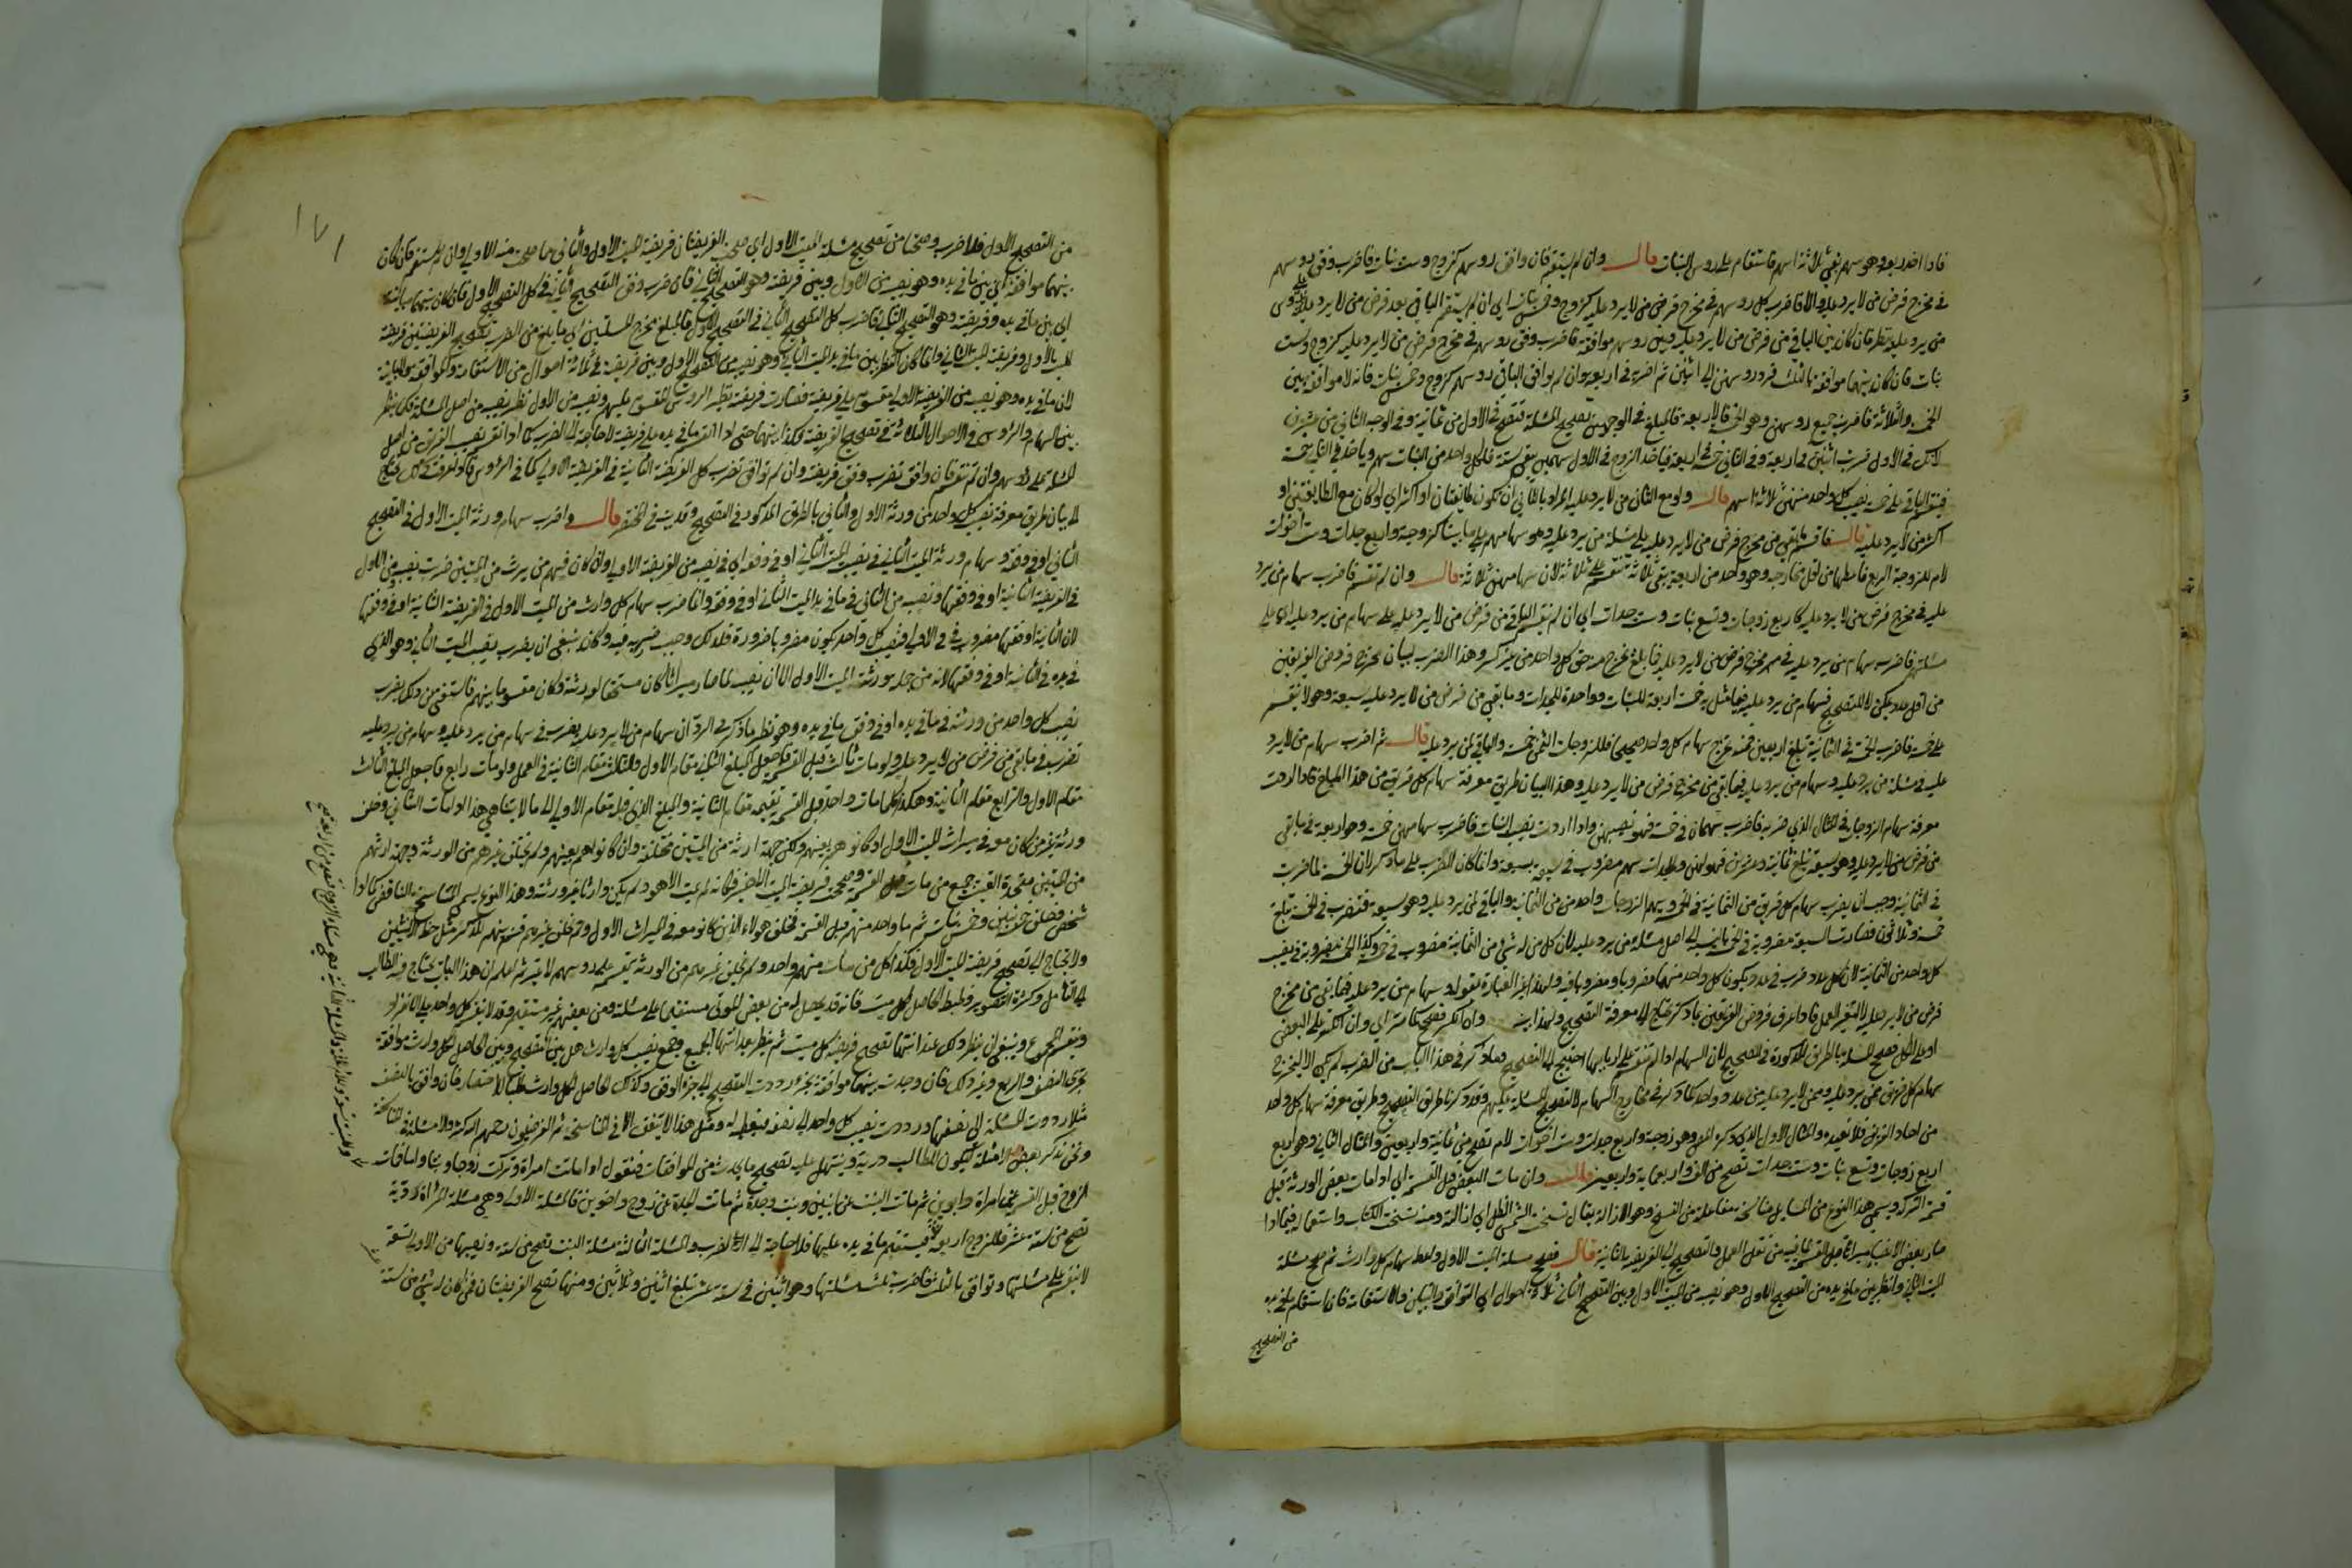 فاذا اخذ ربعه وهو سهم بقي ثلاثة اسهم فاستقام على روس البنات قال وان لم يستقم فان وافق روسهم كزوج وست بنات فاضرب وفق روسهم
في مخرج فرض من لا يرد عليه والا فاضرب كل روسهم في مخرج فرض من لا يرد عليه كزوج وخمس بنات اي ان لم يستقم الباقي بعد فرض من لا يرد عليه على روس
من يرد عليه ينظر فان كان بين الباقي من فرض من لا يرد عليه وبين روسهم موافقة فاضرب وفق روسهم في مخرج فرض من لا يرد عليه كزوج وست
بنات فان كان بينهما موافقة بالثلث فرد روسهن الى اثنين ثم اضربه في اربعة وان لم يوافق الباقي روسهم كزوج وخمس بنات فانه لا موافقة بين
الخمسة والثلاثة فاضرب جميع روسهن وهو الخمسة في الاربعة فالمبلغ في الوجهين تصحيح المسئلة فتصح في الاول من ثمانية وفي الوجه الثاني من عشرين
لانك في الاول ضربت اثنين في اربعة وفي الثاني خمسة في اربعة فياخذ الزوج في الاول سهمين يبقى ستة فلكل واحد من البنات سهم وياخذ في الثاني خمسة
فيقسم الباقي على خمسة نصيب كل واحد منهن ثلاثة اسهم قال ولو مع الثاني من لا يرد عليه المراد بالثاني ان تكون طائفتان او اكثر اي لو كان مع الطايفتين او
اكثر من لا يرد عليه قال فاقسم ما بقي من مخرج فرض من لا يرد عليه على مسئلة من يرد عليه وهو سهامهم على ما بينا كزوجة واربع جدات وست اخوات
لام للزوجة الربع فاعطها من اقل مخارجه وهو واحد من اربعة يبقى ثلاثة تستقيم على ثلاثة لان سهامهن ثلاثة قال وان لم تستقم فاضرب سهام من يرد
عليه في مخرج فرض من لا يرد عليه كاربع زوجات وتسع بنات وست جدات اي ان لم يستقم الباقي من فرض من لا يرد عليه على سهام من يرد عليه اي على
مسئلتهم فاضرب سهام من يرد عليه في مخرج فرض من لا يرد عليه فما بلغ يخرج منه حق كل واحد من غير كسر وهذا الضرب لبيان مخرج فروض الفريقين
من اقل عدد يمكن لا للتصحيح فسهام من يرد عليه فيما مثل به خمسة اربعة للبنات وواحدة للجدات وما بقي من فرض من لا يرد عليه سبعة وهو لا ينقسم
على خمسة فاضرب الخمسة في الثمانية تبلغ اربعين فمنه تخرج سهام كل واحد صحيحا فللزوجات الثمن خمسة والباقي لمن يرد عليه قال ثم اضرب سهام من لا يرد
عليه في مسئلة من يرد عليه وسهام من يرد عليه فيما بقي من مخرج فرض من لا يرد عليه وهذا البيان طريق معرفة سهام كل فريق من هذا المبلغ فاذا اردت
معرفة سهام الزوجات في المثال الذي ضربه فاضرب سهمهن في خمسة فهو نصيبهن واذا اردت نصيب البنات فاضرب سهامهن خمسة وهو اربعة في ما بقي
من فرض من لا يرد عليه وهو سبعة تبلغ ثمانية وعشرين فهو لهن وللجدات سهم مضروب في سبعة بسبعة وانما كان الضرب على ما ذكر لان الخمسة لما ضربت
في الثمانية وجب ان يضرب سهام كل فريق من الثمانية في الخمسة وسهم الزوجات واحد من الثمانية والباقي لمن يرد عليه وهو سبعة فتضرب في الخمسة تبلغ
خمسة وثلاثين فصارت السبعة مضروبة في الخمسة بالنسبة الى اهل مسئلة من يرد عليه لان كل من له شيء من الثمانية مضروب في خمسة وكذا الخمسة مضروبة في نصيب
كل واحد من الثمانية لان كل عدد ضرب في عدد يكون كل واحد منهما مضروبا ومضروبا فيه ولهذا غير العبارة بقوله وسهام من يرد عليه فيما بقي من مخرج
فرض من لا يرد عليه لا لتغير العمل فاذا عرف فروض الفريقين بما ذكر تحتاج الى معرفة التصحيح ولهذا بينه وان انكسر فصحح كما مر اي وان انكسر على البعض
او على الكل فصحح المسئلة بالطريق المذكورة في التصحيح لان السهام اذا لم تستقم على اربابها احتيج الى التصحيح وما ذكر في هذا الباب من الضرب لم يكن الا ليخرج
سهام كل فريق ممن يرد عليه وممن لا يرد عليه من عدد واحد كما ذكر في مخارج السهام لا لتصحيح المسئلة عليهم وقد ذكرنا طريق التصحيح وطريق معرفة سهام كل واحد
من احاد الفريق فلا نعيده والمثال الاول الذي ذكره المص وهو زوجة واربع جدات وست اخوات لام تصح من ثمانية واربعين والمثال الثاني وهو اربع
اربع زوجات وتسع بنات وست جدات تصح من الف واربعماية واربعين قال وان مات البعض قبل القسمة اي اذا مات بعض الورثة قبل
قسمة التركة ويسمى هذا النوع من المسائل مناسخة مفاعلة من النسخ وهو الازالة يقال نسخت الشمس الظل اي ازالته ومنه نسخت الكتاب واستعماله فيما اذا
صار بعض الانصباء ميراثا قبل القسمة لما فيه من نقل العمل والتصحيح الى الفريضة الثانية قال فصحح مسئلة الميت الاول واعط سهام كل وارث ثم صحح مسئلة
الميت الثاني وانظر بين ما في يده من التصحيح الاول وهو نصيبه من الميت الاول وبين التصحيح الثاني ثلاثة احوال اي التوافق والتباين والاستقامة فان استقام ما في يده
من التصحيح
١٧١
من التصحيح الاول فلا ضرب وصحتا من تصحيح مسئلة الميت الاول اي صحت الفريضتان فريضة الميت الاول والثاني مما صحت منه الاولى وان لم يستقم فان كان
بينهما موافقة اي بين ما في يده وهو نصيبه من الاول وبين فريضته وهو التصحيح الثاني فاضرب وفق التصحيح الثاني في كل التصحيح الاول فان كان بينهما مباينة
اي بين ما في يده وفريضته وهو التصحيح الثاني فاضرب كل التصحيح الثاني في التصحيح الاول فالمبلغ مخرج المسئلتين اي ما يبلغ من الضرب تصحيح الفريضتين فريضة
الميت الاول وفريضة الميت الثاني وانما كان النظر بين ما في يد الميت الثاني وهو نصيبه من التصحيح الاول وبين فريضته في ثلاثة احوال من الاستقامة والموافقة والمباينة
لان ما في يده وهو نصيبه من الفريضة الاولى مقسوم على فريضته فصارت فريضته نظير الروس المقسوم عليهم ونصيبه من الاول نظير نصيبهم من اصل المسئلة فكل ينظر
بين السهام والروس في الاحوال الثلاثة في تصحيح الفريضة فكذا بينهما حتى اذا انقسم ما في يده على فريضته لا حاجة الى الضرب كما اذا انقسم نصيب الفريق من اصل
المسئلة على روسهم وان لم تنقسم فان وافق تضرب وفق فريضته وان لم توافق تضرب كل الفريضة الثانية في الفريضة الاولى كما في الروس
الى بيان طريق معرفة نصيب كل واحد من ورثة الاول والثاني بالطريق المذكور في التصحيح وقد بينه في المختصر قال واضرب سهام ورثة الميت الاول في التصحيح
الثاني او في وفقه وسهام ورثة الميت الثاني في نصيب الميت الثاني او في وفقه اي في نصيبه من الفريضة الاولى وان كان فيهم من يرث من الميتين ضربت نصيبه من الاول
في الفريضة الثانية او في وفقها ونصيبه من الثاني في ما في يد الميت الثاني او في وفقه وانما ضرب سهام كل وارث من الميت الاول في الفريضة الثانية او في وفقها
لان الثانية او وفقها مضروب في الاولى فنصيب كل واحد يكون مضروبا ضرورة فلذلك وجب ضربه فيه وكان ينبغي ان يضرب نصيب الميت الثاني وهو الذي
في يده في الثانية او في وفقها لانه من جملة ورثة الميت الاول الا ان نصيبه لما صار ميراثا كان مستحقا لورثته وكان مقسوما بينهم فاستغني عن ذلك بضرب
نصيب كل واحد من ورثته في ما في يده او في وفق ما في يده وهو نظير ما ذكر في الرد ان سهام من لا يرد عليه يضرب في سهام من يرد عليه وسهام من يرد عليه
تضرب في ما بقي من فرض من لا يرد عليه ولو مات ثالث قبل القسمة فاجعل المبلغ الثاني مقام الاول والثالث مقام الثانية في العمل ولو مات رابع فاجعل المبلغ الثالث
مقام الاول والرابع مقام الثانية وهكذا كلما مات واحد قبل القسمة تقيمه مقام الثانية والمبلغ الذي قبله مقام الاولى الى ما لا يتناهى هذا اذا مات الثاني وخلف
ورثة غير من كان معه في ميراث الميت الاول او كانوا هم بعينهم ولكن جهة ارثه من الميتين مختلفة وان كانوا هم بعينهم ولم يخلق غيرهم من الورثة وجهة ارثهم
من الميتين متحدة الغيت جميع من مات قبل القسمة وصحت فريضة الميت الاخير فكانه لم يمت الا هو ولم يكن وارثا غير ورثته وهذا النوع يسمى المناسخ الناقص كما اذا
شخص فخلف ابنين وخمس بنات ثم مات واحد منهم قبل القسمة فخلف هولاء الذين كانوا معه في الميراث الاول ولم يخلف غيرهم قسم بينهم للذكر مثل حظ الانثيين
ولا يحتاج الى تصحيح فريضة الميت الاول فكذا كل من مات منهم واحد ولم يخلف غيرهم من الورثة تقسم على عدد روسهم لا غير ثم اعلم ان هذا الباب يحتاج فيه الطالب
الى التامل وكثرة التصوير وضبط الحاصل لكل ميت فانه قد يحصل له من بعض الموتى مستقيما على مسئلة ومن بعضهم غير مستقيم وقد لا ينقسم كل واحد على الانفراد
وينقسم المجموع وينبغي ان ينظر ذلك عند انتهاء تصحيح فريضة كل ميت ثم ينظر بعد انتهاء الجميع ويجمع نصيب كل وارث هل بين التصحيح وبين الحاصل لكل وارث موافقة
بجزء كالنصف والربع وغير ذلك فان وجدت بينهما موافقة بجزء رددت التصحيح الى جزء الوفق وكذلك الحاصل لكل وارث طلبا للاختصار فان وافق بالنصف
مثلا رددت المسئلة الى نصفها ورددت نصيب كل واحد الى نصفه فيعطى له ومثل هذا لا يتفق الا في المناسخة ثم الفرضيون رحمهم الله اكثروا الامثلة في المناسخة
ونحن نذكر بعض الامثلة ليكون للطالب دربة ويستهل عليه تصحيح ما يحدث من الموافقات فنقول اذا ماتت امراة وتركت زوجا وبنتا واما فمات
الزوج قبل القسمة عن امراة وابوين ثم ماتت البنت عن ابنين وبنت وجدة ثم ماتت الجدة عن زوج واخوين فالمسئلة الاولى وهي مسئلة المراة ردية
تصح من ستة عشر فللزوج اربعة فيستقيم ما في يده عليها فلا حاجة الى الضرب والمسئلة الثالثة مسئلة البنت تصح من ستة ونصيبها من الاولى تسعة
لا ينقسم على مسئلتها وتوافق بالثلث فاضرب ثلث مسئلتها وهو اثنين في ستة عشر تبلغ اثنين وثلاثين ومنها تصح الفريضتان فمن كان له شيء من ستة